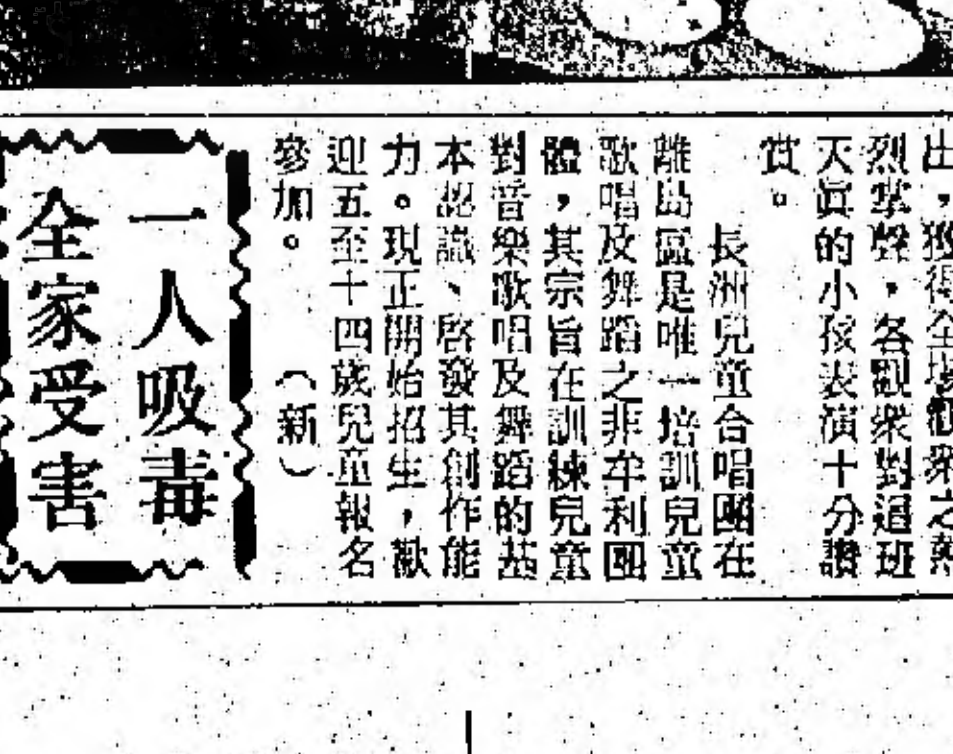 出，獲得全場觀眾之熱
烈掌聲，各觀眾對這班
天眞的小孩表演十分讚
賞。
長洲兒童合唱團在
離島區是唯一培訓兒童
歌唱及舞蹈之非牟利團
體，其宗旨在訓練兒童
對音樂歌唱及舞蹈的基
本認識、啓發其創作能
力。現正開始招生，歡
迎五至十四歲兒童報名
參加。（新）
一人吸毒
全家受害